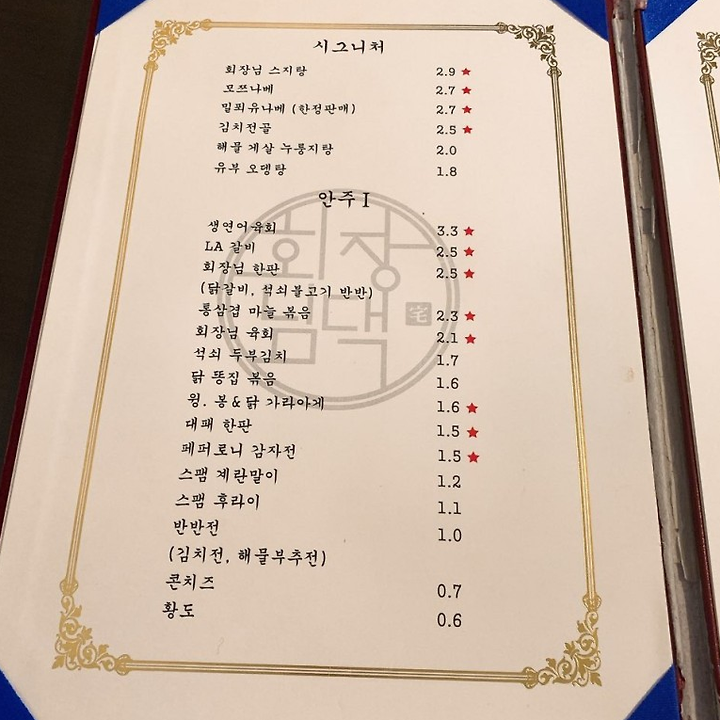 시그니처
회장님 스지탕 2.9 ★
모쯔나베 2.7 ★
밀푀유나베 (한정판매) 2.7 ★
김치전골 2.5 ★
해물 게살 누룽지탕 2.0
유부 오뎅탕 1.8
안주 I
생연어육회 3.3 ★
LA 갈비 2.5 ★
회장님 한판 2.5 ★
(닭갈비, 석쇠불고기 반반)
통삼겹 마늘 볶음 2.3 ★
회장님 육회 2.1 ★
석쇠 두부김치 1.7
닭 똥집 볶음 1.6
윙. 봉&닭 가라아게 1.6 ★
대패 한판 1.5 ★
페퍼로니 감자전 1.5 ★
스팸 계란말이 1.2
스팸 후라이 1.1
반반전 1.0
(김치전, 해물부추전)
콘치즈 0.7
황도 0.6
회장
님댁
宅